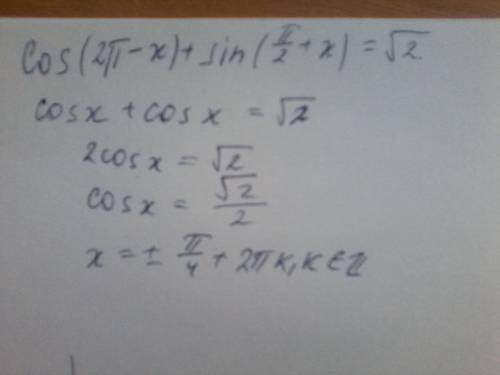 cos(2π-x)+sin(π/2+x)=√2.
cosx+cosx=√2
2cosx=√2
cosx=√2/2
x=±π/4+2πk,k∈Z